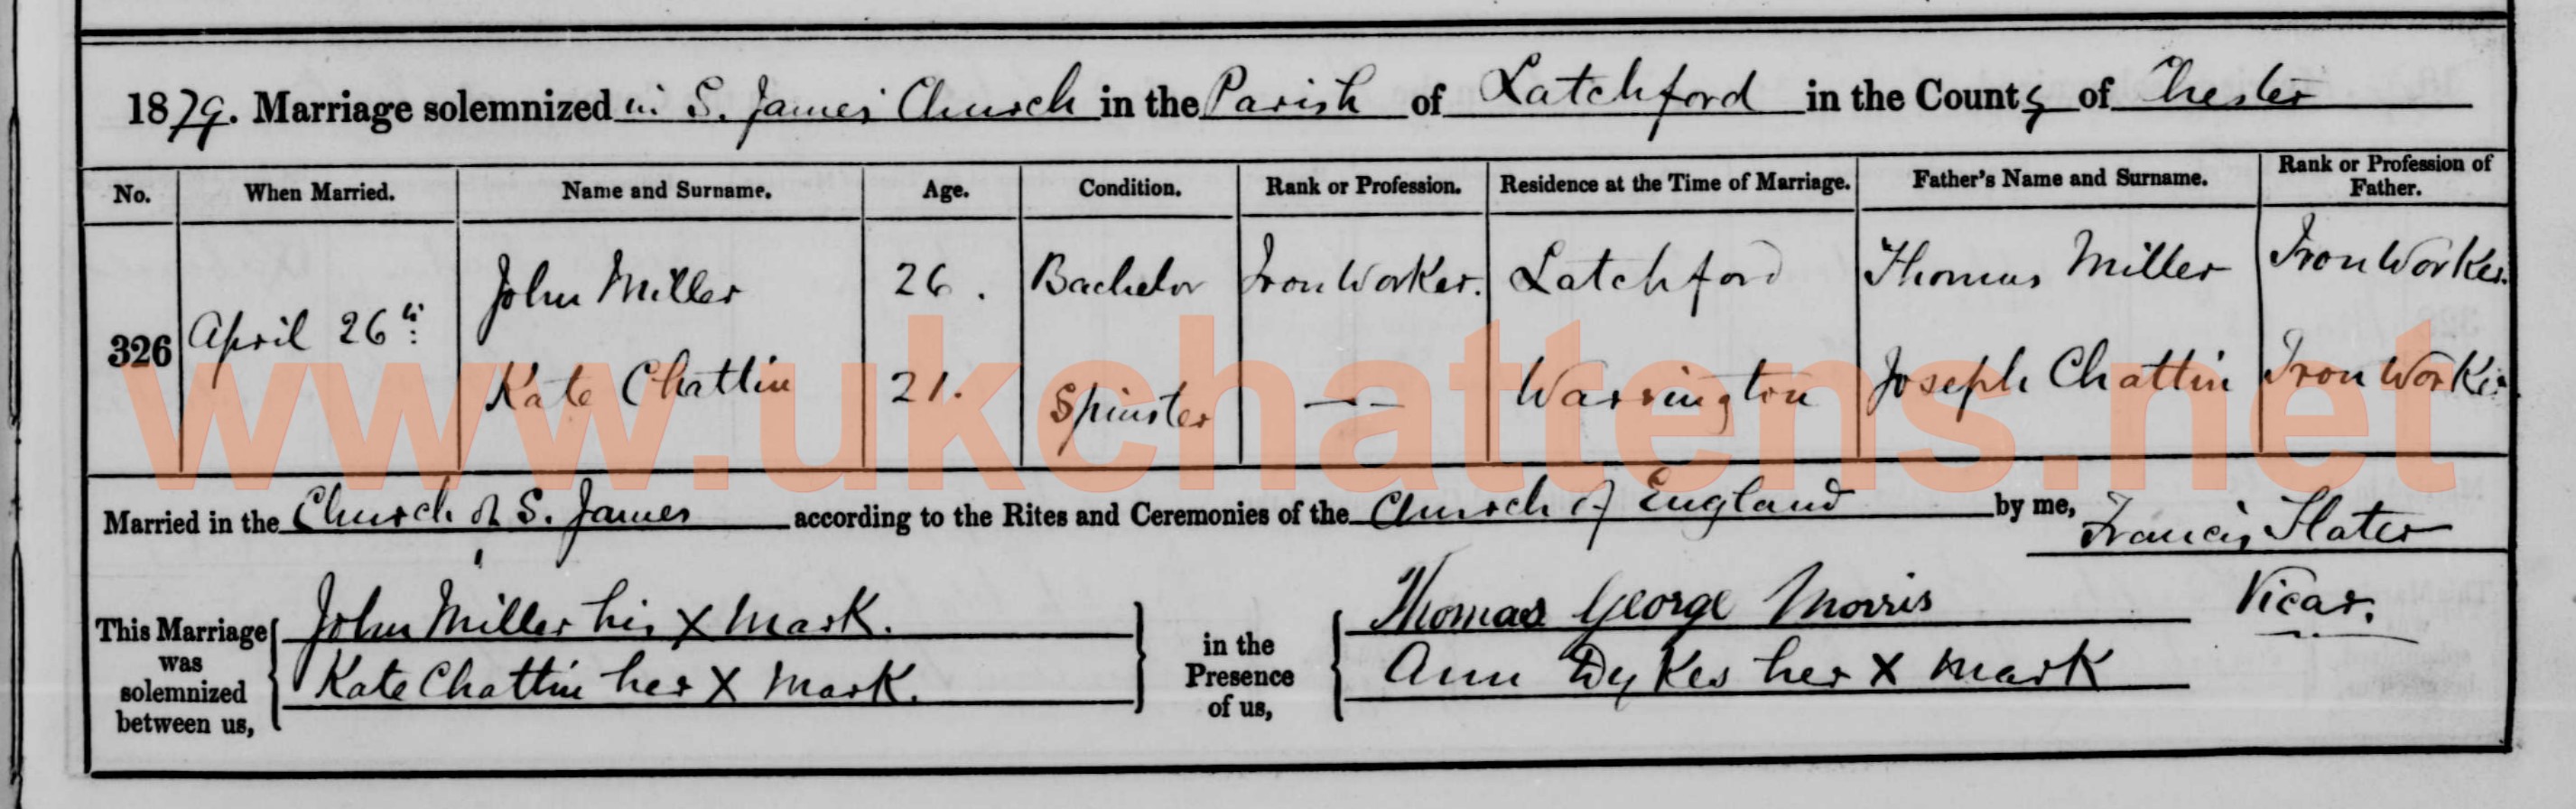 1879. Marriage solemnized in S. James' Church in the Parish of Latchford in the County of Chester
No. When Married. Name and Surname. Age. Condition. Rank or Profession. Residence at the Time of Marriage. Father's Name and Surname. Rank or Profession of Father.
326 April 26th John Miller 26. Bachelor Iron Worker. Latchford Thomas Miller Iron Worker.
Kate Chattin 21. Spinster —— Warrington Joseph Chattin Iron Worker.
www.ukchattens.net
Married in the Church of S. James according to the Rites and Ceremonies of the Church of England by me, Francis Slater
Vicar.
This Marriage was solemnized between us, John Miller his X mark. in the Presence of us, Thomas George Morris
Kate Chattin her X mark. Ann Dykes her X mark